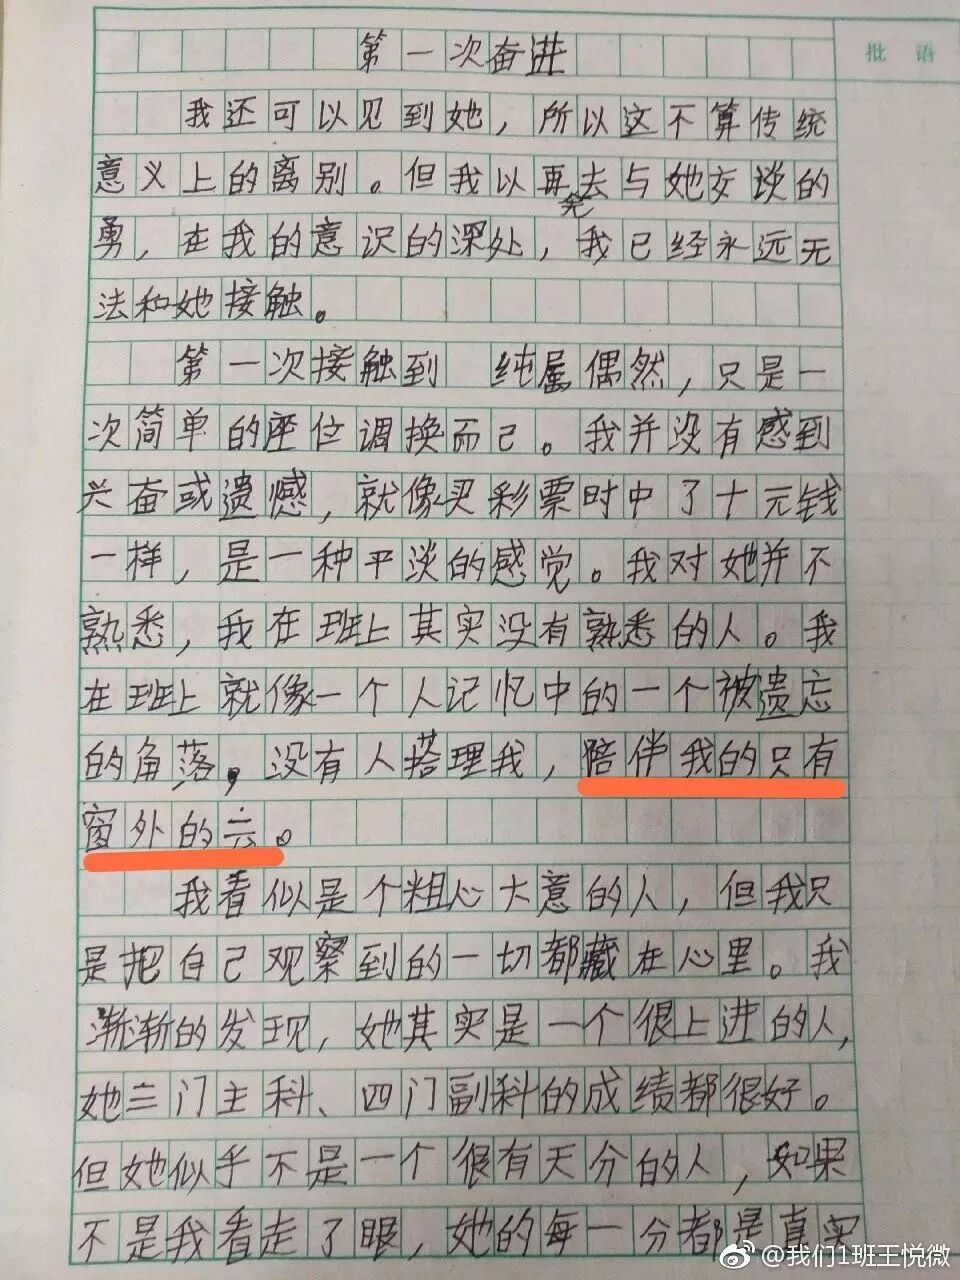 第一次奋进
批 语
我还可以见到她，所以这不算传统
意义上的离别。但我以再去与她交谈的
勇，在我的意识的深处，我已经永远无
法和她接触。
第一次接触到 纯属偶然，只是一
次简单的座位调换而己。我并没有感到
兴奋或遗憾，就像买彩票时中了十元钱
一样，是一种平淡的感觉。我对她并不
熟悉，我在班上其实没有熟悉的人。我
在班上就像一个人记忆中的一个被遗忘
的角落，没有人搭理我，陪伴我的只有
窗外的云。
我看似是个粗心大意的人，但我只
是把自己观察到的一切都藏在心里。我
渐渐的发现，她其实是一个很上进的人，
她三门主科、四门副科的成绩都很好。
但她似乎不是一个很有天分的人，如果
不是我看走了眼，她的每一分都是真实
@我们1班王悦微